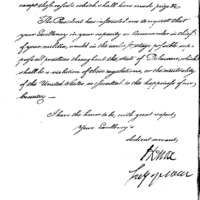 except such vessels which shall have made prize &
The President has instructed me to request that
your Excellency in your capacity as Commander in chief
of your militia, would in the earliest stage possible sup-
press all practices throughout the state of Delaware, which
shall be a violation of these regulations, or the neutrality
of the United States, so essential to the happiness of our
Country.
I have the honor to be, with great respect,
Your Excellency's
obedient servant,